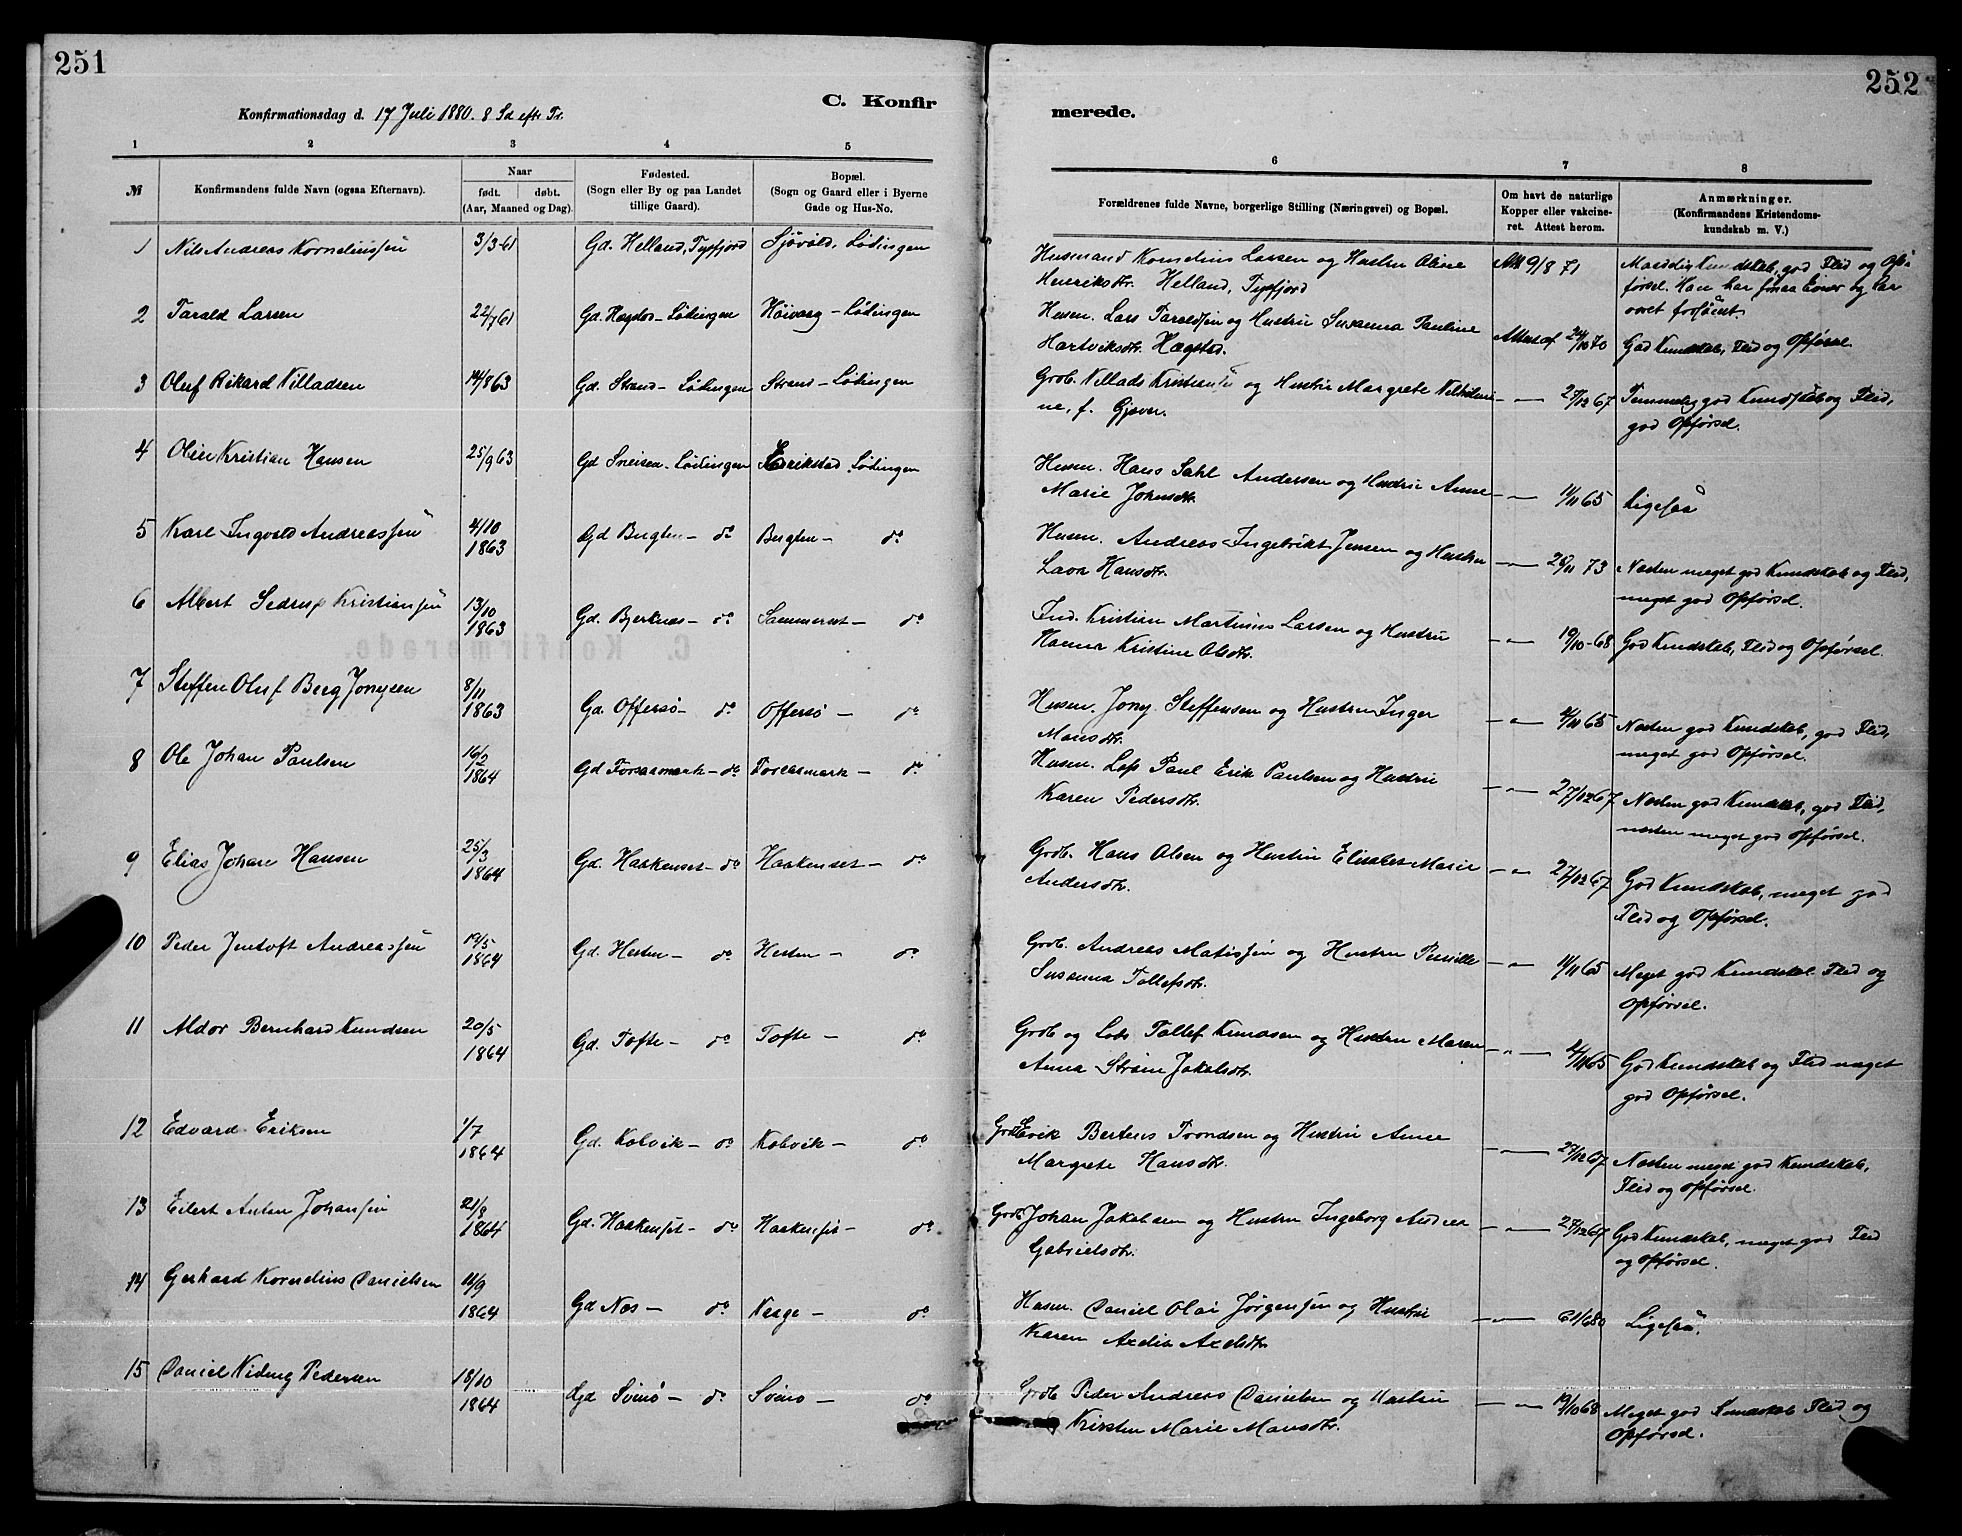 251
252
C. Konfir
merede.
Konfirmationsdag d. 17 Juli 1880. 8 Sd efter Tr.
1 2 3 4 5
6 7 8
№ Konfirmandens fulde Navn (ogsaa Efternavn). Naar født. døbt. (Aar, Maaned og Dag). Fødested. (Sogn eller By og paa Landet tillige Gaard). Bopæl. (Sogn og Gaard eller i Byerne Gade og Hus-No.
Forældrenes fulde Navne, borgerlige Stilling (Næringsvei) og Bopæl. Om havt de naturlige Kopper eller vakcineret. Attest herom. Anmærkninger. (Konfirmandens Kristendomskundskab m. V.)
1 Nils Andreas Korneliussen 3/3 61 Gd. Helland, Tysfjord Sjøvold, Lødingen
Husmand Kornelius Larsen og Hustru Oline Att 9/8 71 Kundskab, god Flid og Op-
Henriksdtr. Helland, Tysfjord førsel. Han har
været forsømt.
2 Tarald Larsen 61 Gd. Hegstad - Lødingen Høivaag - Lødingen
Husm. Lars Taraldsen og Hustru Susanna Pauline Attest af 70 God Kundskab, Flid og Opførsel
Hartviksdtr. Hægstad.
3 Oluf Rikard Villadsen 14/8 63 Gd. Strand - Lødingen Strand - Lødingen
Grdb. Villads Kristiansen og Hustru Margrete Vilhelmi- — " — 27/12 67 Temmelig god Kundskab og Flid,
ne, f. Gjæver. god Opførsel.
4 Kristian Hansen 25/9 63 Gd Sneisen - Lødingen Erikstad Lødingen
Husm. Hans Dahl Andersen og Hustru Anne — " — 11/11 65 Ligesaa
Marie Johnsdtr.
5 Karl Ingvald Andreassen 4/10 1863 Gd Bugten - do Bugten - do
Husm. Andreas Ingebrikt Jensen og Hustru — " — 26/11 73 Næsten meget god Kundskab og Flid,
Lava Hansdtr. meget god Opførsel.
6 Albert Sedrup Kristiansen 13/10 1863 Gd. Bjerknæs - do Sammernæs - do
Ind. Kristian Martinus Larsen og Hustru — " — 19/10 - 68 God Kundskab, Flid og Opførsel.
Hanna Kristine Olsdtr.
7 Steffen Oluf Berg Jonysen 8/11 1863 Gd. Offersø - do Offersø - do
Husm. Jony Steffensen og Hustru Inger — " — 11/11 65 Næsten god Kundskab, god Flid,
Monsdtr. meget god Opførsel.
8 Ole Johan Paulsen 16/2 1864 Gd Forsaamark - do Forsaamark - do
Husm. Lap Paul Erik Paulsen og Hustru — " — 27/12 67 Næsten god Kundskab, god Flid,
Karen Pedersdtr. næsten meget god Opførsel.
9 Elias Johan Hansen 25/3 1864 Gd. Haakenset - do Haakenset - do
Grdb. Hans Olsen og Hustru Elisabet Marie — " — 27/12 67 God Kundskab, meget god
Andersdtr. Flid og Opførsel.
10 Peder Jentoft Andreassen 19/5 1864 Gd. Hesten - do Hesten - do
Grdb. Andreas Matissen og Hustru Pernille — " — 11/11 65 Meget god Kundskab Flid og
Susanna Tollefsdtr. Opførsel.
11 Aldor Bernhard Knudsen 20/5 1864 Gd. Tofte - do Tofte - do
Grdb og Lods Tollef Knudsen og Hustru Maren — " — 11/11 65 God Kundskab og Flid meget
Anna Strøm Jakobsdtr. god Opførsel.
12 Edvard Eriksen 1/7 1864 Gd. Kobvik - do Kobvik - do
Grdb. Erik Berteus Trondsen og Hustru Anne — " — 27/12 67 Næsten meget god Kundskab,
Margrete Hansdtr. Flid og Opførsel.
13 Eilert Anton Johansen 21/8 1864 Gd. Haakenset - do Haakenset - do
Grdb Johan Jakobsen og Hustru Ingeborg Andrea — " — 27/12 67 God Kundskab, meget god Flid
Gabrielsdtr. og Opførsel.
14 Gerhard Kornelius Danielsen 11/9 1864 Gd Næs - do Næsge - do
Husm. Daniel Olai Jørgensen og Hustru — " — Ligesaa.
Karen Axelia Axelsdtr.
15 Daniel Normann Pedersen 18/10 1864 Gd Svinø - do Svinø - do
Grdb Peder Andreas Danielsen og Hustru — " — 19/10 68 Meget god Kundskab Flid og
Kirsten Marie Monsdtr. Opførsel.